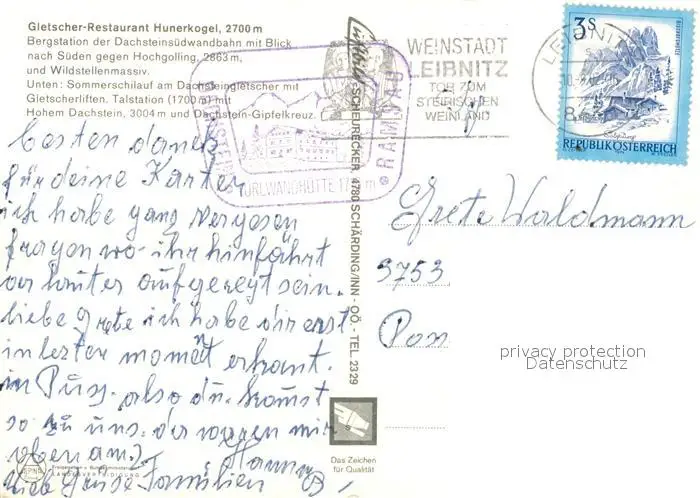 Gletscher-Restaurant Hunerkogel, 2700 m
Bergstation der Dachsteinsüdwandbahn mit Blick
nach Süden gegen Hochgolling, 2863 m,
und Wildstellenmassiv.
Unten: Sommerschilauf am Dachsteingletscher mit
Gletscherliften. Talstation (1700 m) mit
Hohem Dachstein, 3004 m und Dachstein-Gipfelkreuz.
besten dank
für deine Karten
ich habe ganz vergesen
fragen wo ihr hinfährt
vor lauter aufgeregt sein.
liebe Grete ich habe dir erst
in letzten moment erkant.
im Pus. also du komst
so zu uns. da waren mir
oben am.
Liebe Grüse Familien
SCHEURECKER, 4780 SCHÄRDING/INN - OÖ. - TEL. 2329
WEINSTADT
LEIBNITZ
TOR ZUM
STEIRISCHEN
WEINLAND
LEIBNITZ
RAMSAU
TÜRLWANDHÜTTE
3 S
REPUBLIK ÖSTERREICH
Grete Waldmann
3753
privacy protection
Datenschutz
Das Zeichen
für Qualität
LANDESVERTEIDIGUNG